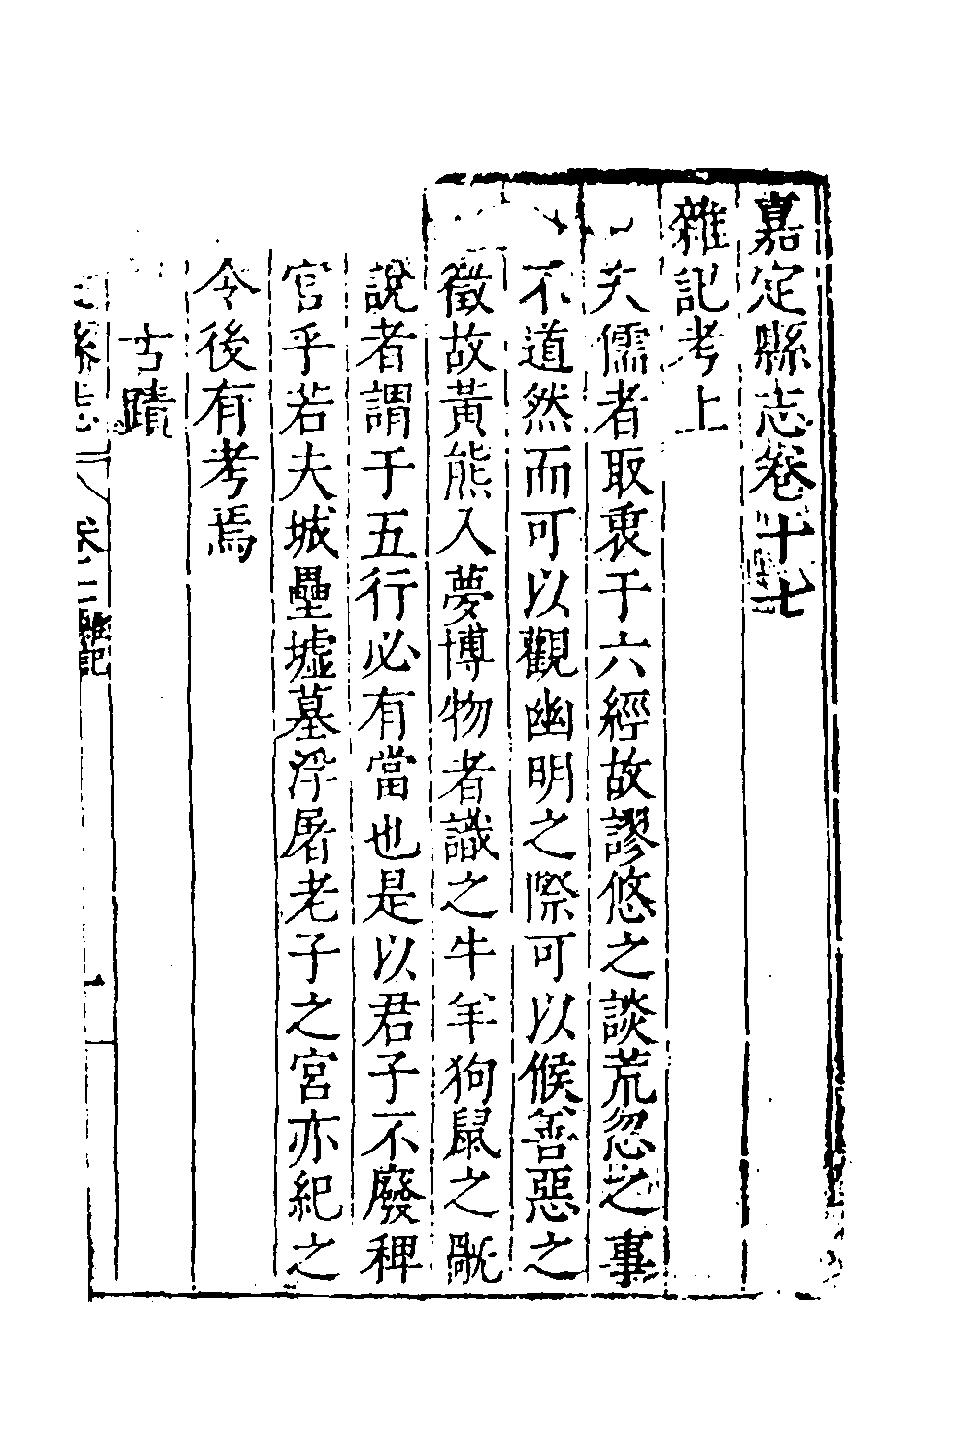 嘉定縣志卷十七
雜記考上
夫儒者取衷于六經故謬悠之談荒忽之事
不道然而可以觀幽明之際可以候善惡之
徵故黃熊入夢博物者識之牛羊狗鼠之
說者謂于五行必有當也是以君子不廢稗
官乎若夫城壘墟墓浮屠老子之宮亦紀之
令後有考焉
古蹟
縣志 卷 雜記 一